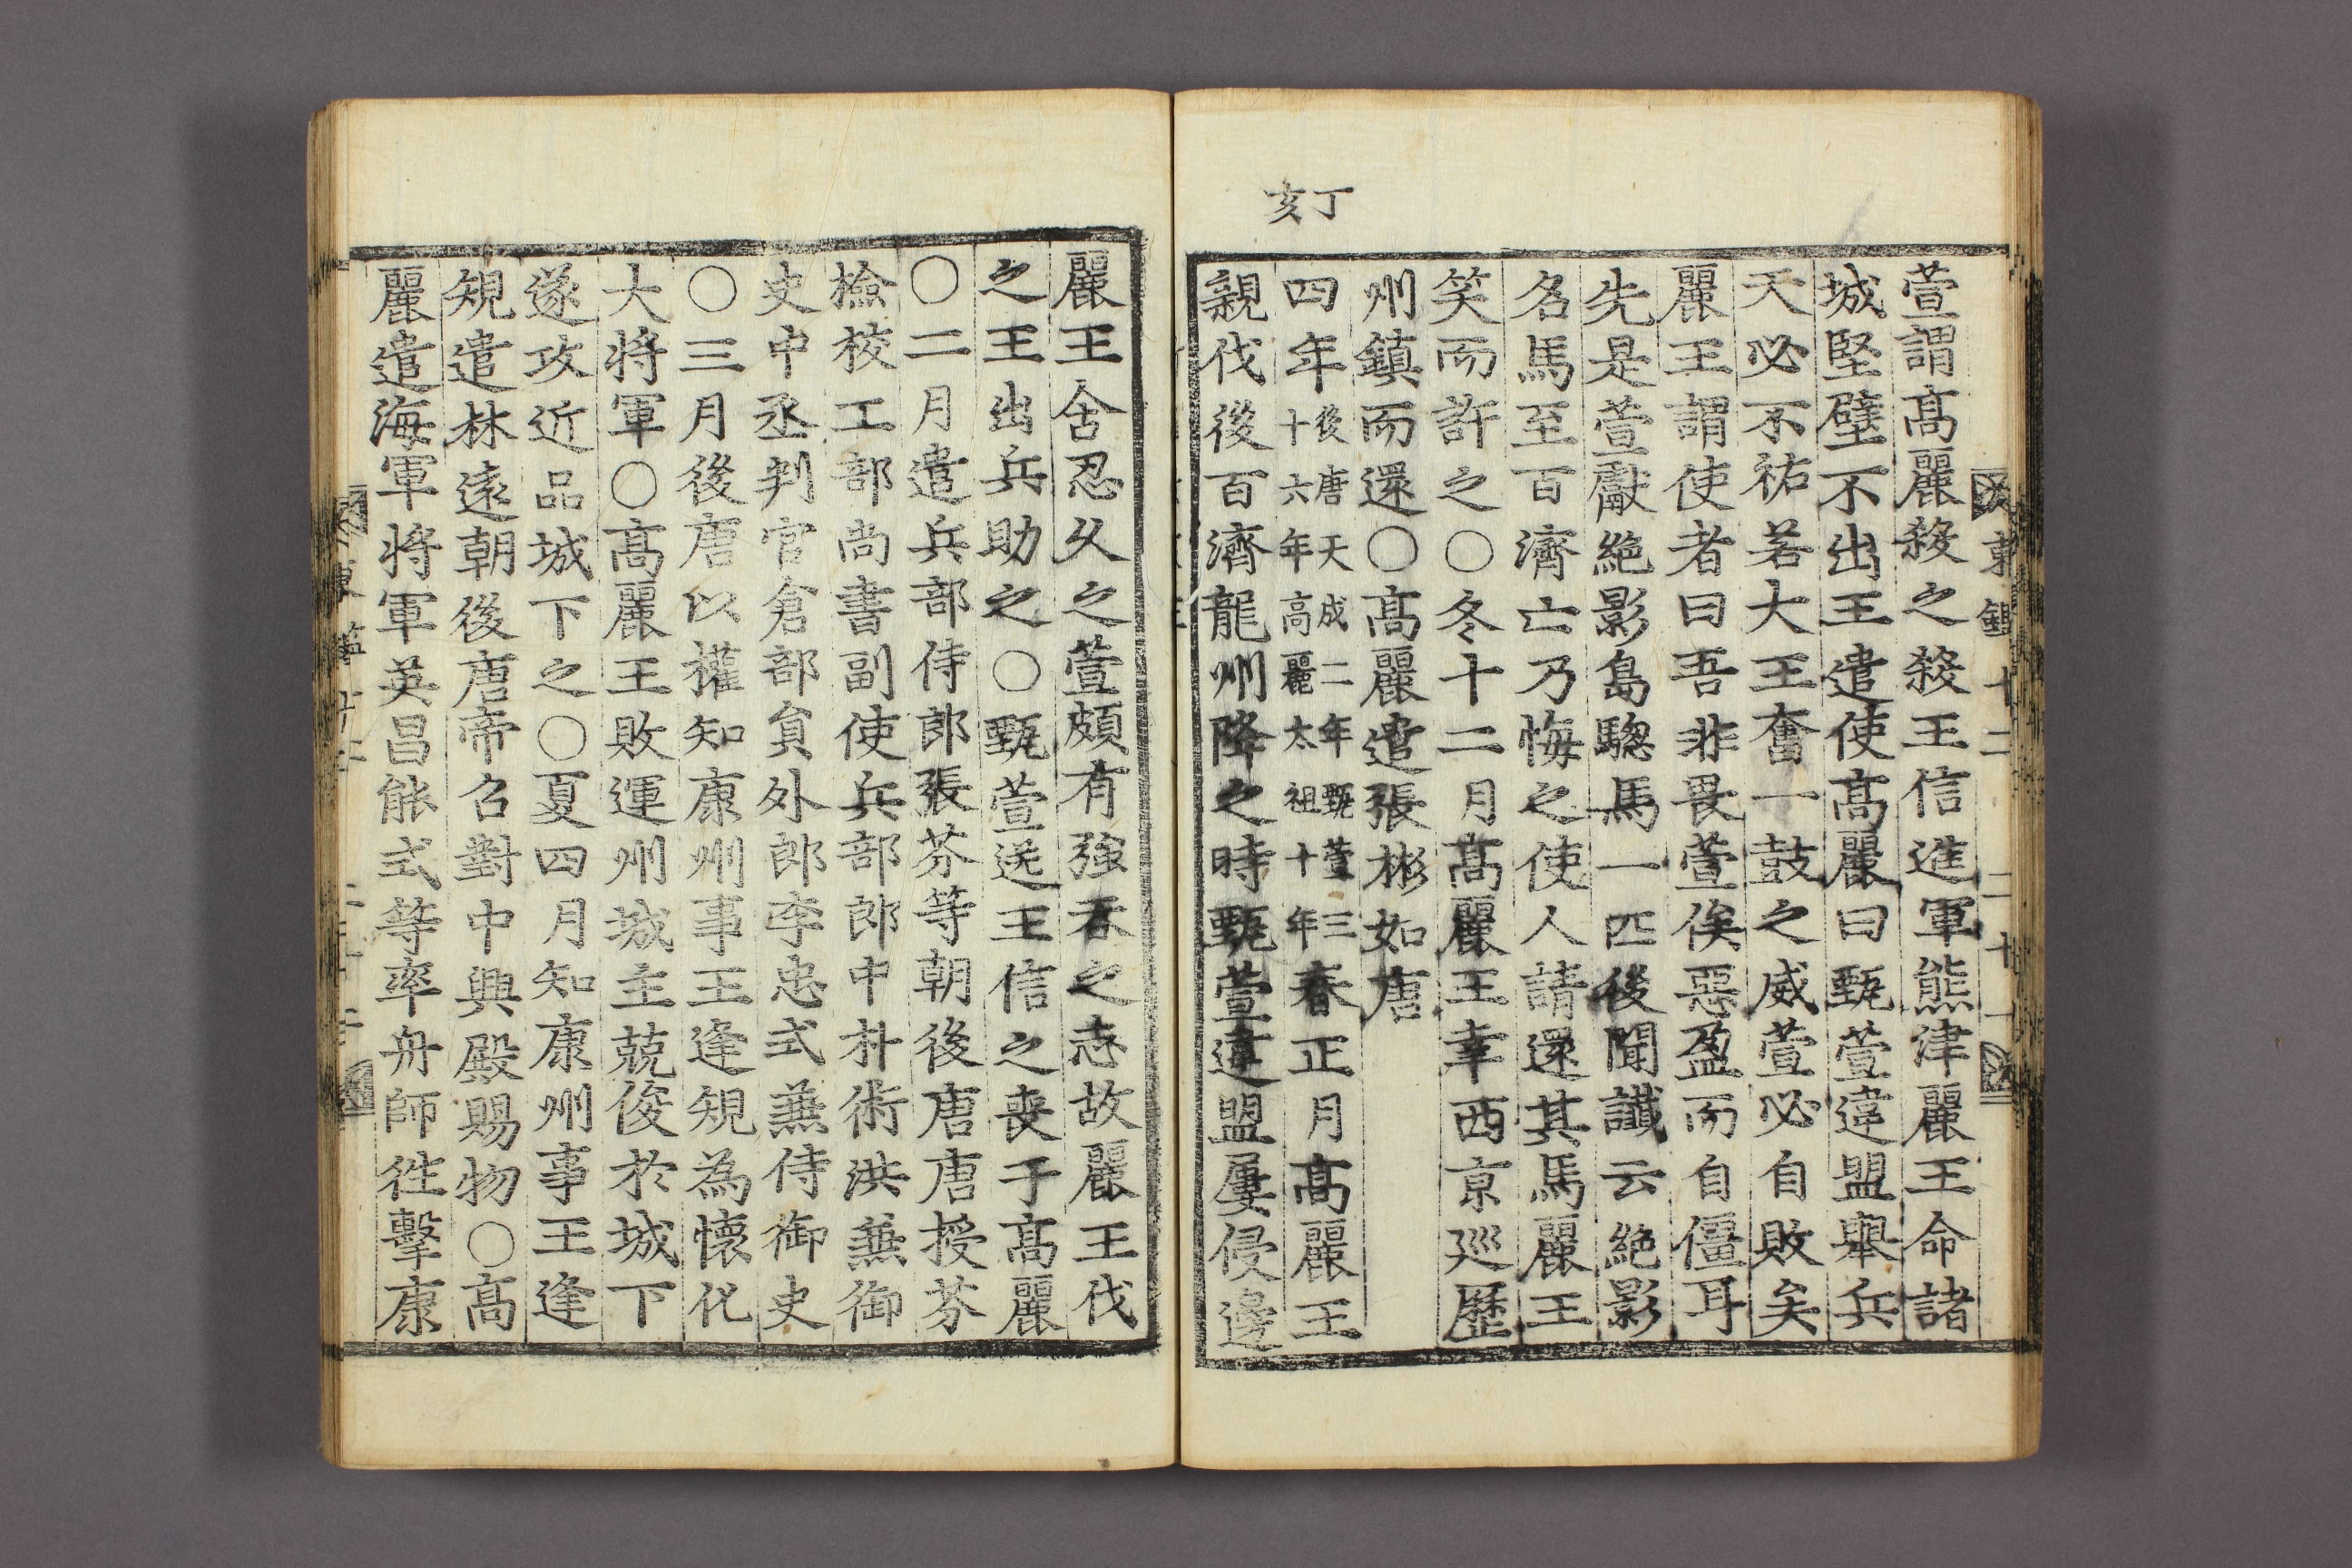 東鑑十二
萱謂髙麗殺之殺王信進軍熊津麗王命諸
城堅壁不出王遣使髙麗曰甄萱違盟舉兵
天必不祐若大王奮一鼓之威萱必自敗矣
麗王謂使者曰吾非畏萱俟惡盈而自僵耳
先是萱獻絶影島驄馬一匹後聞讖云絶影
名馬至百濟亡乃悔之使人請還其馬麗王
笑而許之〇冬十二月髙麗王幸西京巡歷
州鎮而還〇髙麗遣張彬如唐
丁亥
四年後唐天成二年甄萱三十六年高麗太祖十年春正月髙麗王
親伐後百濟龍州降之時甄萱違盟屢侵邊
麗王含忍久之萱頗有強吞之志故麗王伐
之王出兵助之〇甄萱送王信之喪于髙麗
〇二月遣兵部侍郎張芬等朝後唐唐授芬
檢校工部尚書副使兵部郎中朴術洪兼御
史中丞判官倉部貟外郎李忠式兼侍御史
〇三月後唐以權知康州事王逢規為懷化
大將軍〇髙麗王敗運州城主兢俊於城下
遂攻近品城下之〇夏四月知康州事王逢
規遣林遠朝後唐帝召對中興殿賜物〇髙
麗遣海軍將軍英昌能式等率舟師徃擊康